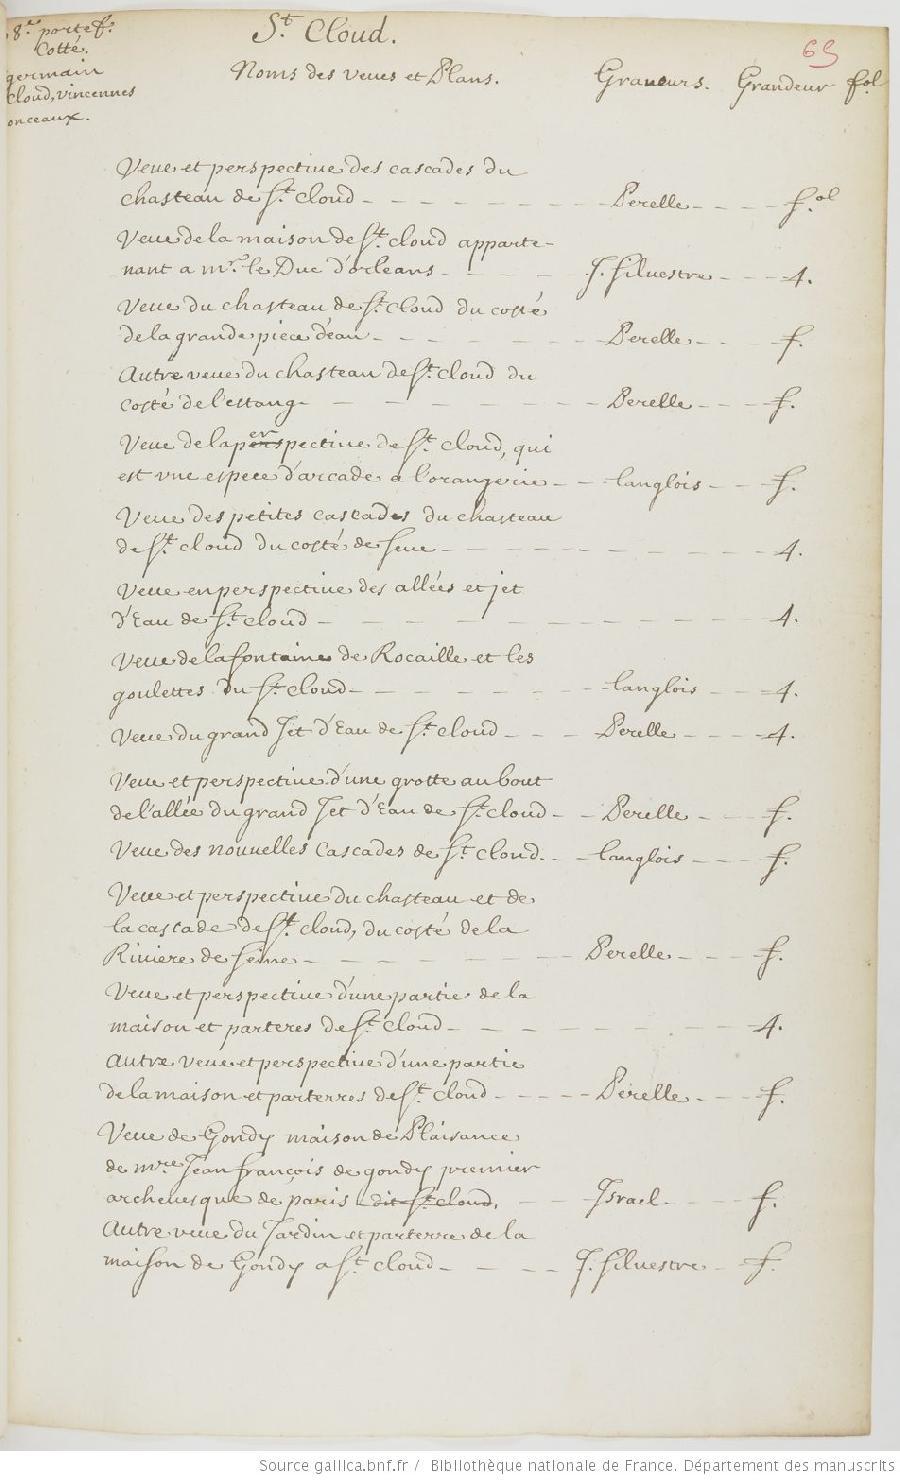 8.e portef.
Cotté.
germain
Cloud, vincennes
onceaux.
St. Cloud.
65
Noms des veues et Plans. Graueurs. Grandeur fol
Veue et perspectiue des cascades du
chasteau de St. Cloud - - - - - - - Perelle - - - - fol
Veue de la maison de St. cloud apparte-
nant a mr. le Duc d'orleans - - - J. silvestre - - - 4.
Veue du chasteau de St. Cloud du costé
de la grande piece d'eau - - - - - - Perelle - - - f.
Autre veue du chasteau de St. cloud du
costé de l'estang - - - - - - - Perelle - - - f.
Veue de la perspectiue de St. Cloud, qui
est vne espece d'arcade a l'orangerie - - langlois - - f.
Veue des petites cascades du chasteau
de St. cloud du costé de seue - - - - - - - - 4.
Veue en perspectiue des allées et jet
d'Eau de St. cloud - - - - - - - - - - 4.
Veue de la fontaine de Rocaille et les
goulettes du St. cloud - - - - - - langlois - - - 4.
Veue du grand Jet d'Eau de St. cloud - - - Perelle - - - 4.
Veue et perspectiue d'une grotte au bout
de l'allée du grand Jet d'Eau de St. cloud - - Perelle - - f.
Veue des nouuelles Cascades de St. cloud. - - langlois - - - f.
Veue et perspectiue du chasteau et de
la cascade de St. cloud, du costé de la
Riuiere de seine - - - - - - - Perelle - - - f.
Veue et perspectiue d'une partie de la
maison et parteres de St. cloud - - - - - - - - 4.
Autre veüe et perspectiue d'une partie
de la maison et parterres de St. cloud - - - - - Perelle - - - f.
Veue de Gondy maison de Plaisance
de mre Jean françois de gondy premier
archeuesque de paris dit St. cloud, - - Israel - - - f.
Autre veue du Jardin et parterre de la
maison de Gondy a St. cloud - - - - J. silvestre - - f.
Source gallica.bnf.fr / Bibliothèque nationale de France. Département des manuscrits